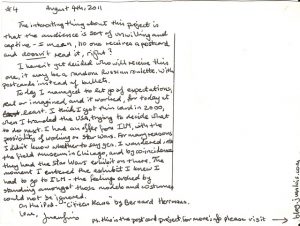 #4 August 9th, 2011
The interesting thing about this project is
that the audience is sort of unwilling and
captive - I mean, no one receives a postcard
and doesn't read it, right?
I haven't yet decided who will receive this
one, it may be a random Russian roulette. With
postcards instead of bullets.
Today I managed to let go of expectations,
real or imagined, and it worked, for today at
least. I think I got this card in 2000,
when I traveled the USA, trying to decide what
to do next. I had an offer from ILM, with the
possibility of working on Star Wars. For many reasons
I didn't know whether to say yes. I wandered into
the Field Museum in Chicago, and by coincidence
they had the Star Wars exhibit on there. The
moment I entered the exhibit I knew I
had to go to ILM - the feelings evoked by
standing amongst those models and costumes
could not be ignored.
On the iPod - Citizen Kane by Bernard Herrmann.
Love,
P.S. this is the postcard project. For more info please visit